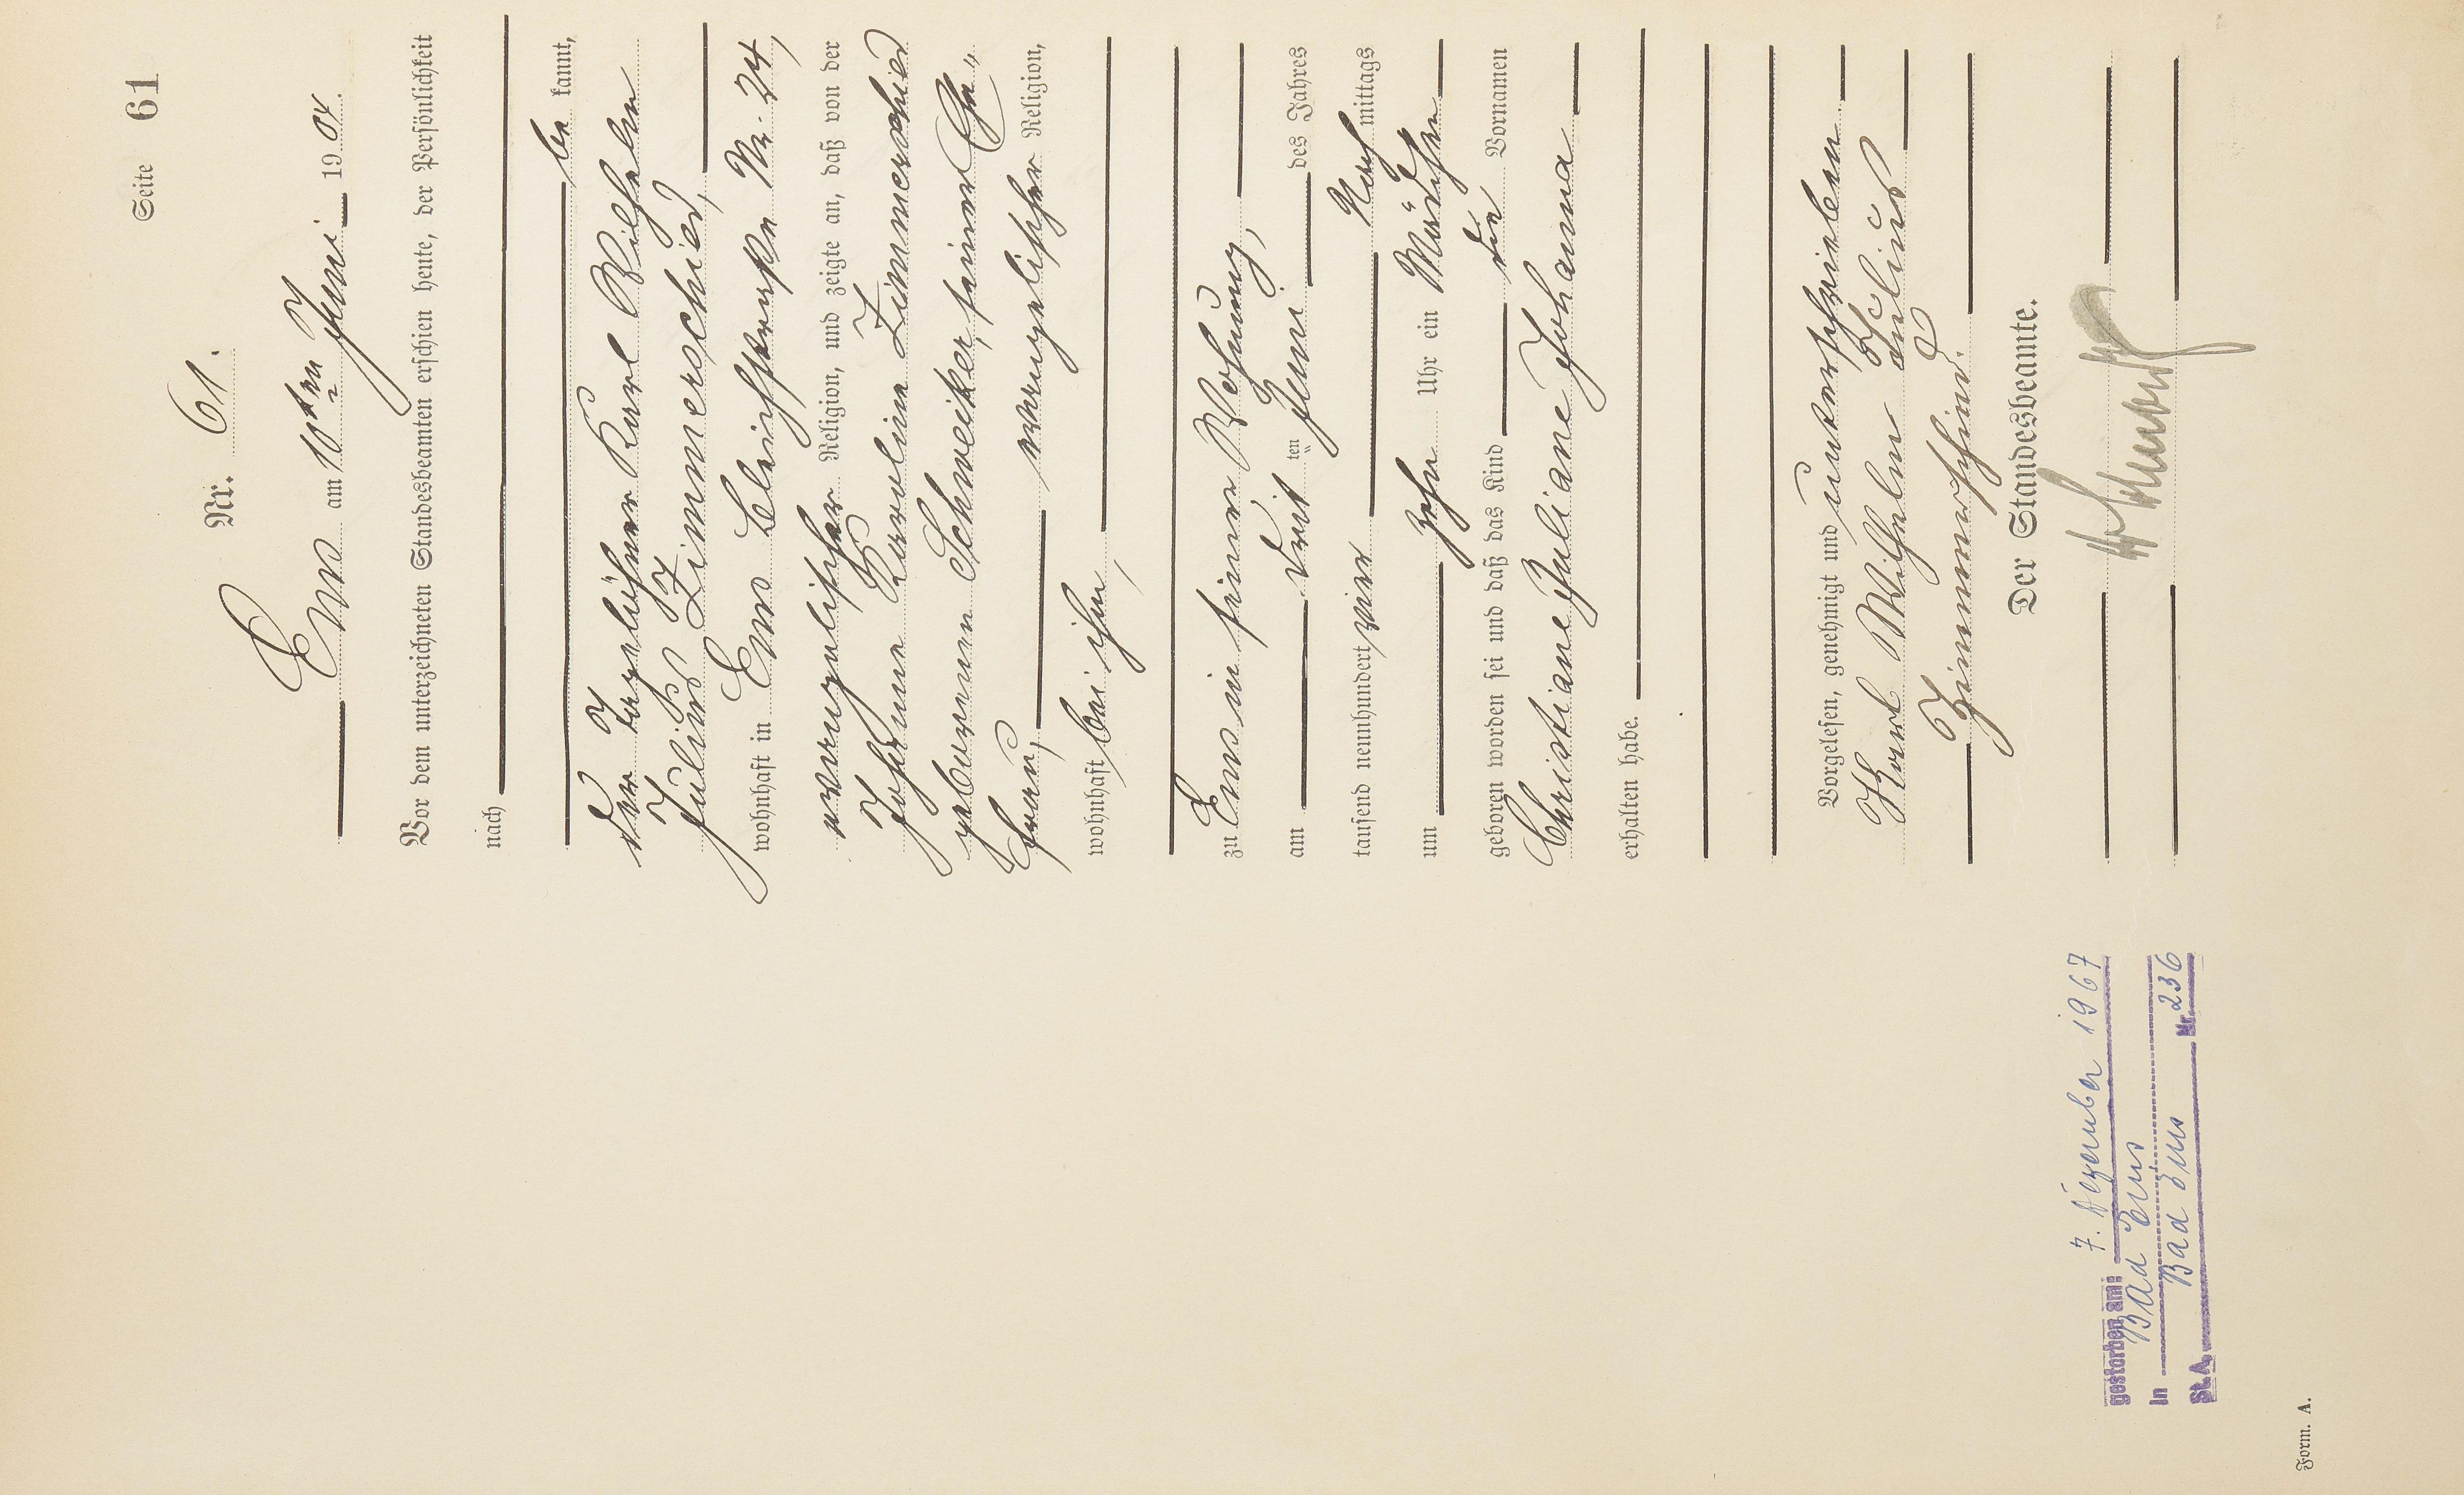 Seite 61
Nr. 61.
Ems am 10ten Juni 1904.
Vor dem unterzeichneten Standesbeamten erschien heute, der Persönlichkeit
nach
be kannt,
der Tagelöhner Karl Wilhelm
Julius Zimmerschied,
wohnhaft in Ems Bleichstraße Nr. 24,
evangelischer Religion, und zeigte an, daß von der
Johanna Karoline Zimmerschied
geborenen Schweiker, seiner Ehe„
frau, evangelischer Religion,
wohnhaft bei ihm,
zu Ems in seiner Wohnung,
am dritten Juni des Jahres
tausend neunhundert vier Nachmittags
um zehn Uhr ein Mädchen
geboren worden sei und daß das Kind die Vornamen
Christiane Juliane Johanna
erhalten habe.
Vorgelesen, genehmigt und unterschrieben
Karl Wilhelm Julius
Zimmerschied.
Der Standesbeamte.
gestorben am: 7. Dezember 1967
in Bad Ems
St.A. Bad Ems Nr. 236
Form. A.